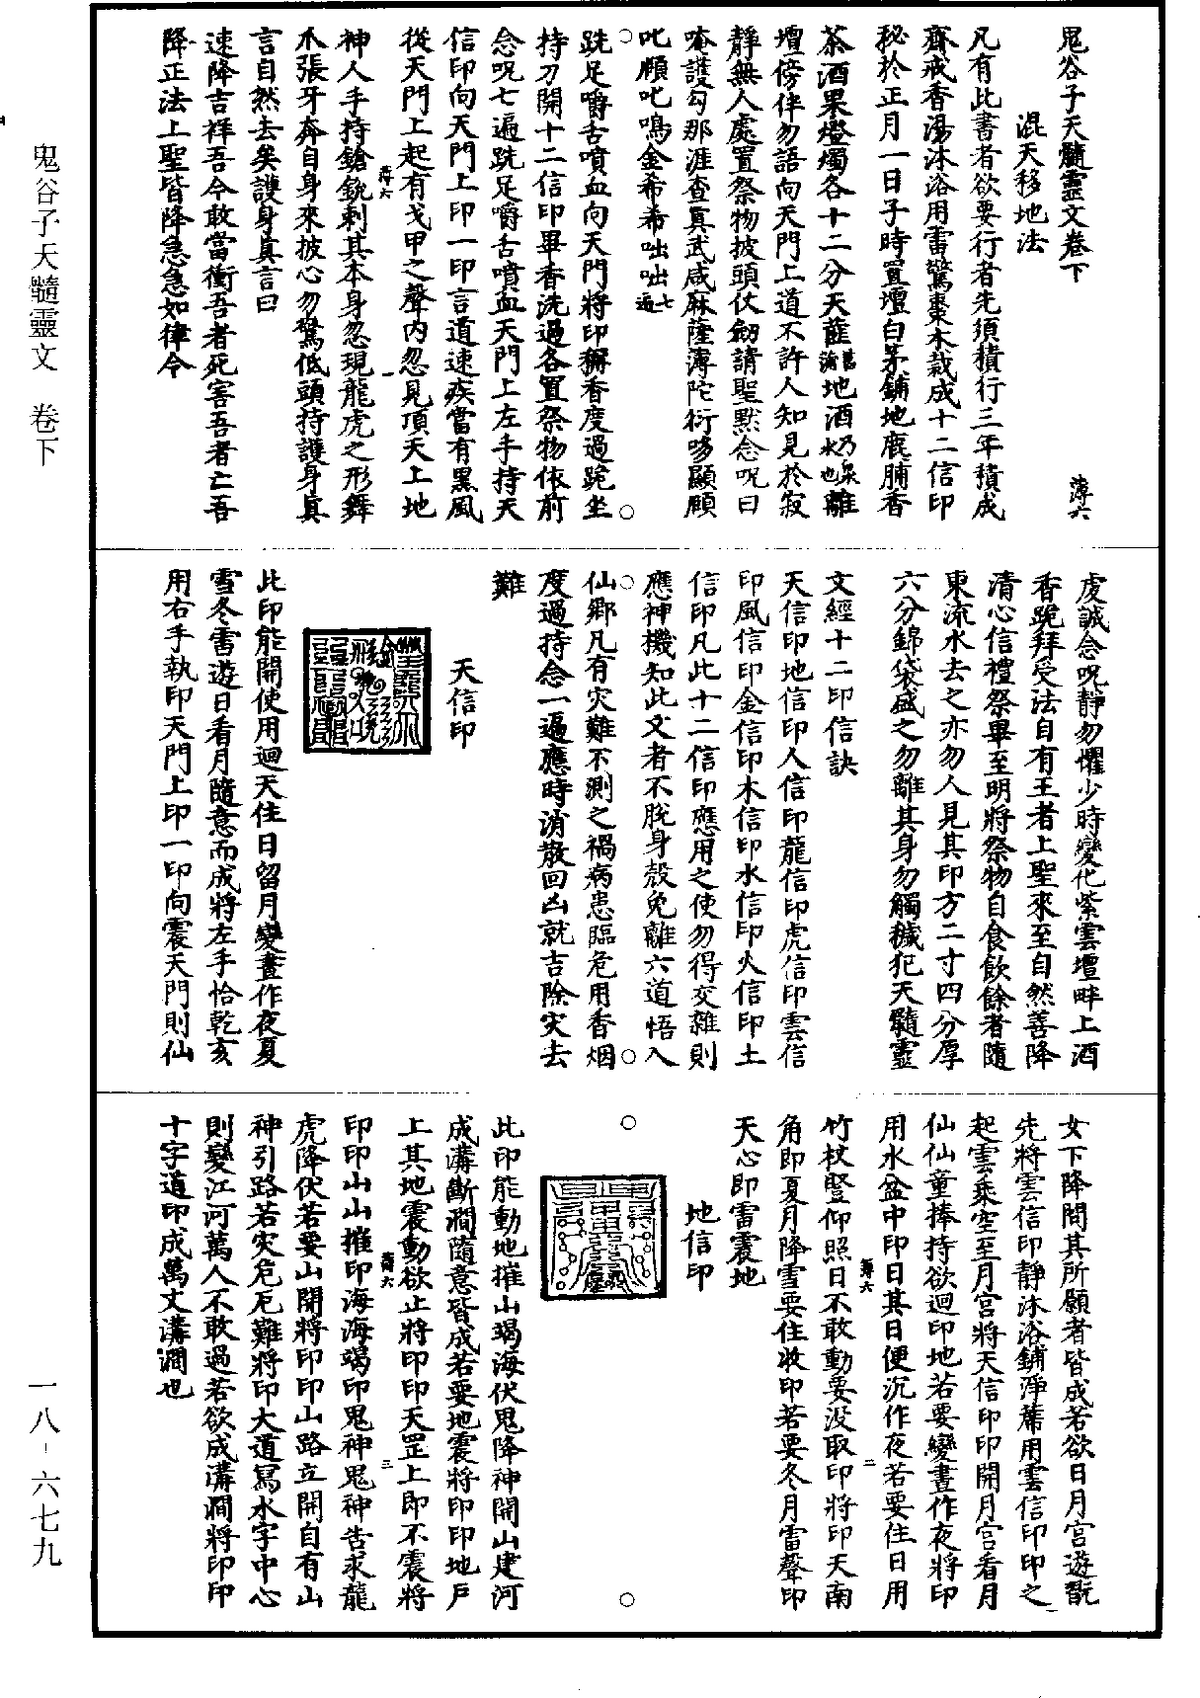 鬼谷子天髓靈文卷下
薄六
混天移地法
凡有此書者欲要行者先須積行三年積成
齋戒香湯沐浴用雷驚棗木裁成十二信印
秘於正月一日子時置壇白茅鋪地鹿脯香
茶酒果燈燭各十二分天蘿蔔地酒乃泉水也離
壇傍伴勿語向天門上道不許人知見於寂
靜無人處置祭物披頭仗劒請聖默念呪曰
唵護勾那涯查真武咸麻薩溥陀衍哆顯願
叱願叱鳴金希希咄咄七遍
跣足嚼舌噴血向天門將印㩧香度過跪坐
持刀開十二信印畢香洗過各置祭物依前
念呪七遍跣足嚼舌噴血天門上左手持天
信印向天門上印一印言道速疾當有黑風
從天門上起有戈甲之聲內忽見頂天上地
薄六
一
神人手持鎗銳刺其本身忽現龍虎之形舞
爪張牙奔自身來披心勿驚低頭持護身真
言自然去矣護身真言曰
速降吉祥吾今敢當衝吾者死害吾者亡吾
降正法上聖皆降急急如律令
虔誠念呪靜勿懼少時變化紫雲壇畔上酒
香跪拜受法自有王者上聖來至自然善降
清心信禮祭畢至明將祭物自食飲餘者隨
東流水去之亦勿人見其印方二寸四分厚
六分錦袋盛之勿離其身勿觸穢犯天髓靈
文經十二印信訣
天信印地信印人信印龍信印虎信印雲信
印風信印金信印木信印水信印火信印土
信印凡此十二信印應用之使勿得交雜則
應神機知此文者不脫身殼免離六道悟入
仙鄉凡有灾難不測之禍病患臨危用香烟
度過持念一遍應時消散回凶就吉除灾去
難
天信印
此印能開使用迴天住日留月變晝作夜夏
雪冬雷遊日看月隨意而成將左手恰乾亥
用右手執印天門上印一印向震天門則仙
女下降問其所願者皆成若欲日月宮遊翫
先將雲信印靜沐浴鋪淨蓆用雲信印印之
起雲乘空至月宮將天信印印開月宮看月
仙仙童捧持欲迴印地若要變晝作夜將印
用水盆中印日其日便沉作夜若要住日用
薄六
二
竹杖豎仰照日不敢動要沒取印將印天南
角即夏月降雪要住收印若要冬月雷聲印
天心即雷震地
地信印
此印能動地摧山竭海伏鬼降神開山建河
成溝斷澗隨意皆成若要地震將印印地戶
上其地震動欲止將印印天罡上即不震將
薄六
三
印印山山摧印海海竭印鬼神鬼神告求龍
虎降伏若要山開將印印山路立開自有山
神引路若灾危厄難將印大道寫水字中心
則變江河萬人不敢過若欲成溝澗將印印
十字道印成萬丈溝澗也
鬼谷子天髓靈文　卷下
一八-六七九